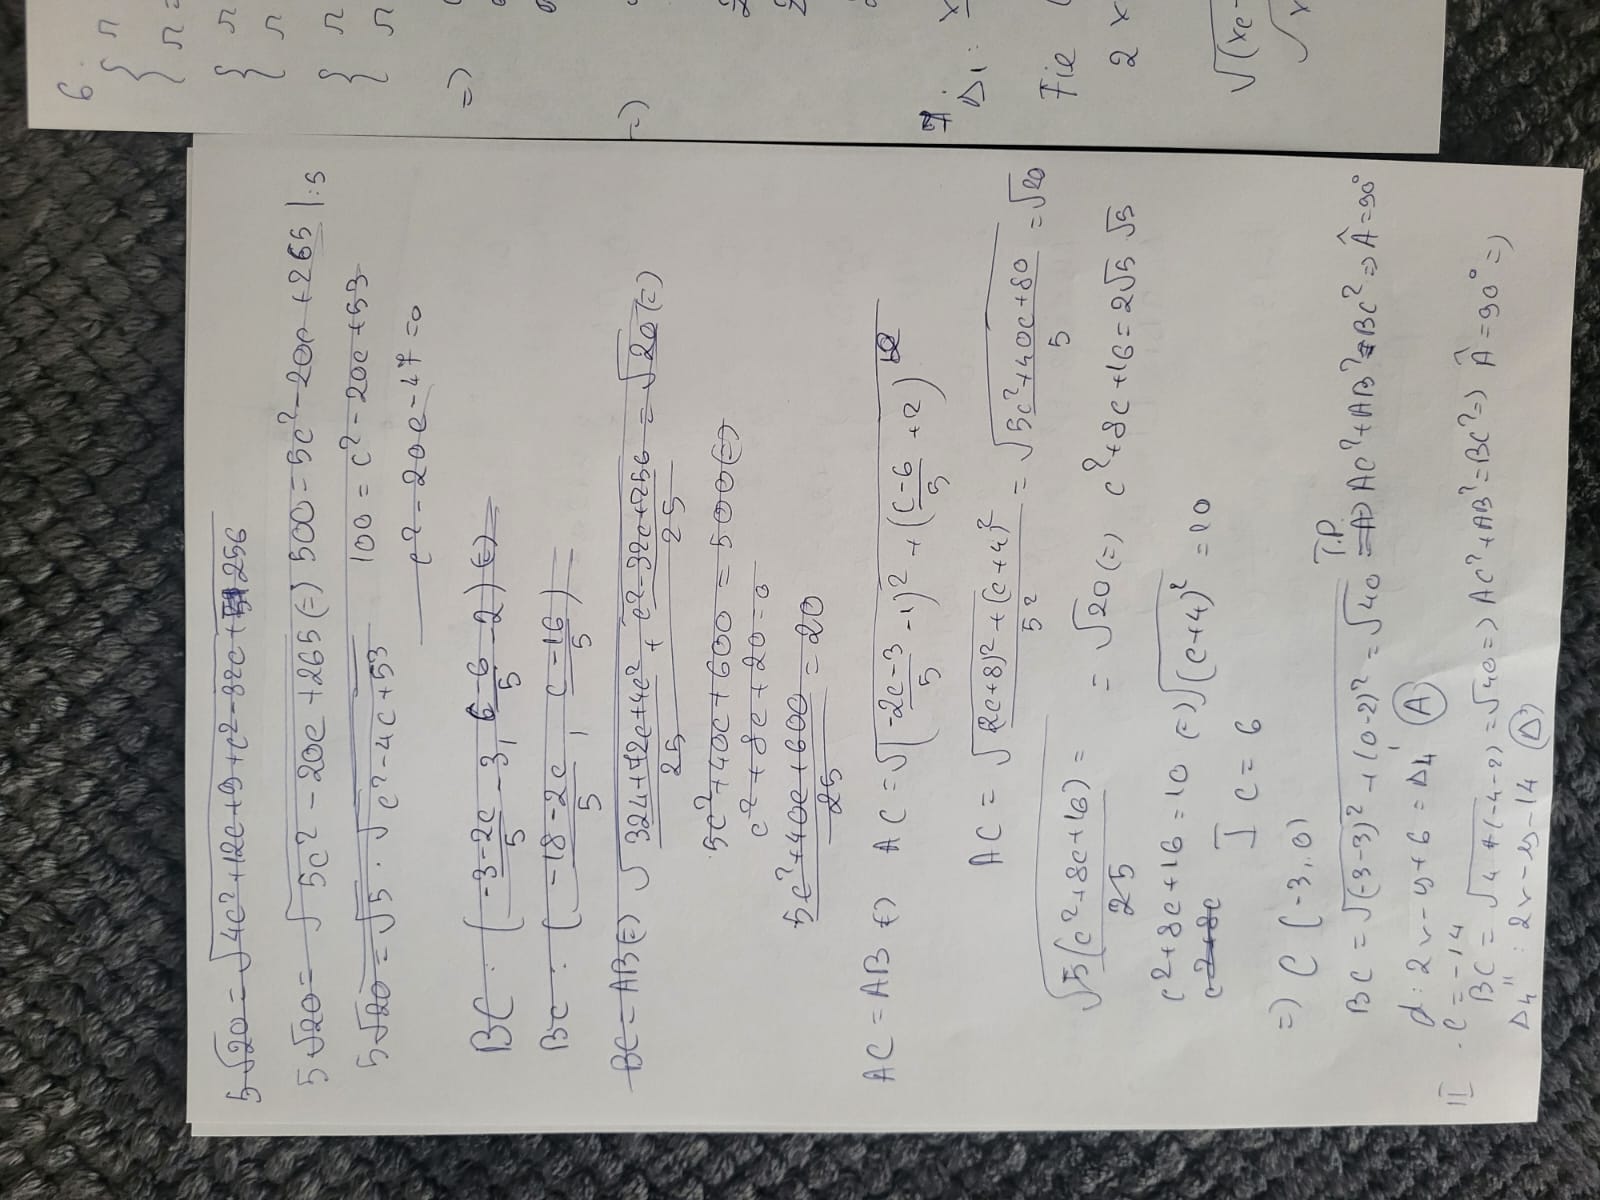 5√20 = √4c²+12c+9+c²-32c+256
5√20 = √5c²-20c+265 (=) 500 = 5c²-20c+265 |:5
5√20 = √5 · √c²-4c+53 100 = c²-20c+53
c²-20c-47=0
BC : (-3-2c/5 - 3, c-6/5 - 2) (=)
BC : (-18-2c/5, c-16/5)
BC = AB (=) √324+72c+4c²/25 + c²-32c+256/25 = √20 (=)
5c²+40c+600 = 500 (=)
c²+8c+20=0
5c²+40c+600/25 = 20
AC = AB (=) AC = √(-2c-3/5 - 1)² + (c-6/5 + 2)
AC = √(2c+8)²+(c+4)²/5² = √5c²+40c+80/5 = √20
√5(c²+8c+16)/25 = = √20 (=) c²+8c+16 = 2√5 √5
c²+8c+16 = 10 (=) √(c+4)² = 10
c²+8c
I c = 6
=) C (-3, 0)
BC = √(-3-3)²+(0-2)² = √40 T.P. => AC²+AB²=BC² => Â=90°
d: 2x-y+6 = Δ4' (A)
II . c = -14
BC = √4+(-4-2) = √40 => AC²+AB²=BC² => Â=90° =)
Δ4'' : 2x-y-14 (D)
6.
{
{
{
=)
=)
7.
Δ1 : x
Fie (
2 x
√(xc-
√x